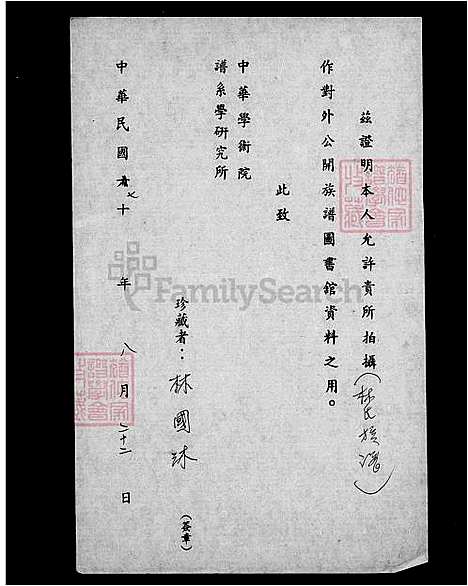 茲證明本人允許貴所拍攝(林氏族譜)
作對外公開族譜圖書館資料之用。
此致
中華學術院
譜系學研究所
珍藏者：林國
(簽章)
中華民國七十年八月二十二日
FamilySearch